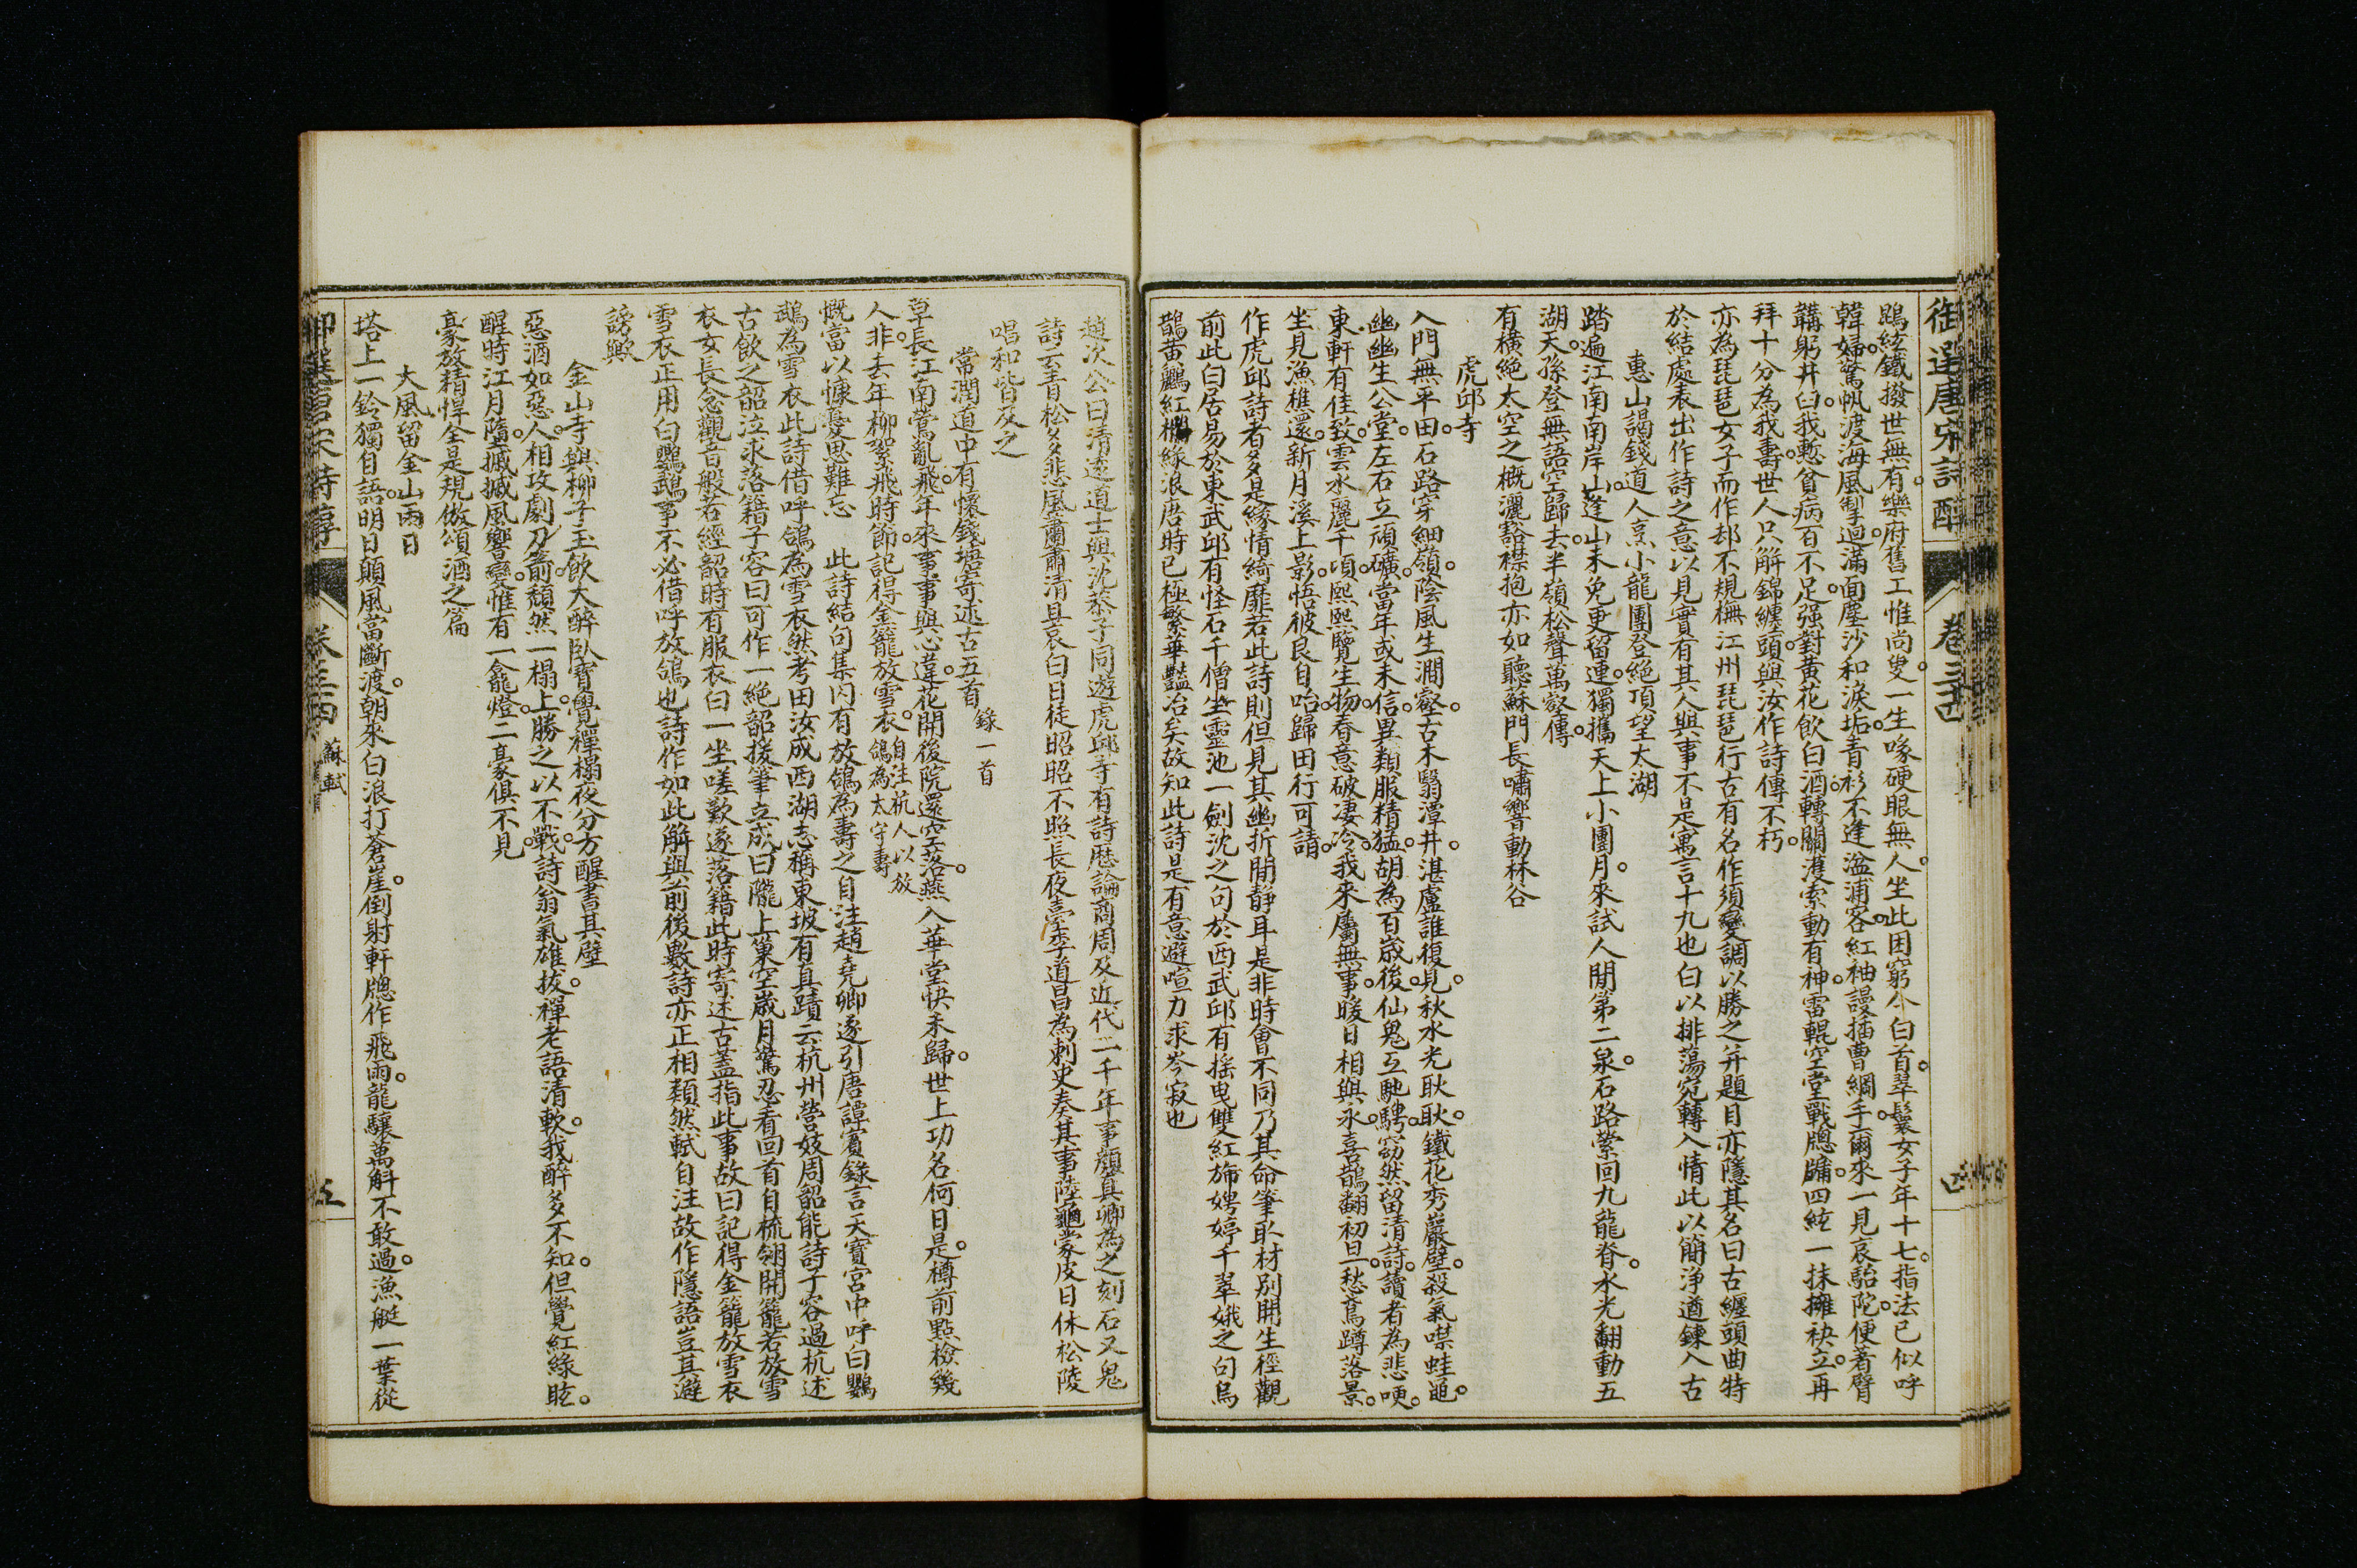 御選唐宋詩醇
卷三十四
四
鵾絃鐵撥世無有樂府舊工惟尚叟一生啄硬眼無人坐此困窮今白首翠鬟女子年十七指法已似呼
韓婦驚帆渡海風掣迴滿面塵沙和淚垢青衫不逢湓浦客紅袖謾插曹綱手爾來一見哀駘陀便著臂
韝躬井臼我慙貧病百不足强對黃花飲白酒轉關濩索動有神雷輥空堂戰牕牖四絃一抹擁袂立再
拜十分為我壽世人只解錦纏頭與汝作詩傳不朽
亦為琵琶女子而作却不規橅江州琵琶行古有名作須變調以勝之并題目亦隱其名曰古纏頭曲特
於結處表出作詩之意以見實有其人與事不是寓言十九也白以排蕩宛轉入情此以簡淨遒鍊入古
惠山謁錢道人烹小龍團登絕頂望太湖
踏遍江南南岸山逢山未免更留連獨攜天上小團月來試人閒第二泉石路縈回九龍脊水光翻動五
湖天孫登無語空歸去半嶺松聲萬壑傳
有橫絕太空之概灑豁襟抱亦如聽蘇門長嘯響動林谷
虎邱寺
入門無平田石路穿細嶺陰風生澗壑古木翳潭井湛盧誰復見秋水光耿耿鐵花秀巖壁殺氣噤蛙黽
幽幽生公堂左右立頑礦當年或未信異類服精猛胡為百歲後仙鬼互馳騁窈然留清詩讀者為悲哽
東軒有佳致雲水麗千頃熙熙覽生物春意破凄冷我來屬無事暖日相與永喜鵲翻初旦愁鳶蹲落景
坐見漁樵還新月溪上影悟彼良自咍歸田行可請
作虎邱詩者多是緣情綺靡若此詩則但見其幽折閒靜耳是非時會不同乃其命筆取材別開生徑觀
前此白居易於東武邱有怪石千僧坐靈池一劍沈之句於西武邱有搖曳雙紅斾娉婷千翠娥之句烏
鵲黃鸝紅欄綠浪唐時已極繁華豔冶矣故知此詩是有意避喧力求岑寂也
趙次公曰清遠道士與沈恭子同遊虎邱寺有詩歷論商周及近代二千年事顏真卿為之刻石又鬼
詩云青松多悲風蕭蕭清且哀白日徒昭昭不照長夜臺李道昌為刺史奏其事陸龜蒙皮日休松陵
唱和皆及之
常潤道中有懷錢塘寄述古五首 錄一首
草長江南鶯亂飛年來事事與心違花開後院還空落燕入華堂怏未歸世上功名何日是樽前點檢幾
人非去年柳絮飛時節記得金籠放雪衣 自注杭人以放鴿為太守壽
慨當以慷憂思難忘 此詩結句集内有放鴿為壽之自注趙堯卿遂引唐譚賓錄言天寶宮中呼白鸚
鵡為雪衣此詩借呼鴿為雪衣然考田汝成西湖志稱東坡有真蹟云杭州營妓周韶能詩子容過杭述
古飲之韶泣求落籍子容曰可作一絕韶援筆立成曰隴上巢空歲月驚忍看回首自梳翎開籠若放雪
衣女長念觀音般若經韶時有服衣白一坐嗟歎遂落籍此時寄述古蓋指此事故曰記得金籠放雪衣
雪衣正用白鸚鵡事不必借呼放鴿也詩作如此解與前後數詩亦正相類然軾自注故作隱語豈其避
謗歟
金山寺與柳子玉飲大醉臥寶覺禪榻夜分方醒書其壁
惡酒如惡人相攻劇刀箭頹然一榻上勝之以不戰詩翁氣雄拔禪老語清軟我醉多不知但覺紅綠眩
醒時江月墮摵摵風響變惟有一龕燈二豪俱不見
豪放精悍全是規倣頌酒之篇
大風留金山兩日
塔上一鈴獨自語明日顛風當斷渡朝來白浪打蒼崖倒射軒牕作飛雨龍驤萬斛不敢過漁艇一葉從
御選唐宋詩醇
卷三十四 蘇軾
五